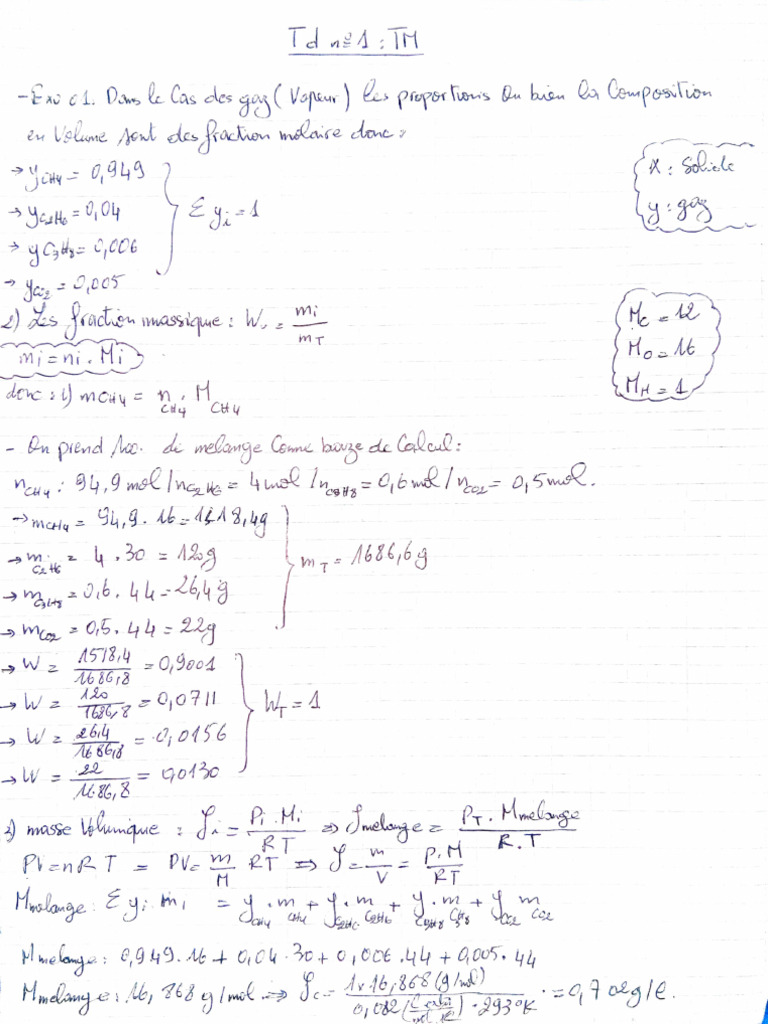 Td n°1 : TM
- Exo 01. Dans le Cas des gaz ( Vapeur ) les proportions ou bien la Composition
en Volume sont des fraction molaire donc :
→ yCH4 = 0,949
→ yC2H6 = 0,04
→ yC3H8 = 0,006
→ yCO2 = 0,005
Σ yi = 1
x : Solide
y : gaz
2) Les fraction massique : Wi = mi / mT
mi = ni . Mi
MC = 12
MO = 16
MH = 1
donc : 1) mCH4 = nCH4 . MCH4
- On prend 100. di melange Comme bauze de Calcul :
nCH4 : 94,9 mol / nC2H6 = 4 mol / nC3H8 = 0,6 mol / nCO2 = 0,5 mol.
→ mCH4 = 94,9 . 16 = 1518,4g
→ mC2H6 = 4 . 30 = 120g
→ mC3H8 = 0,6 . 44 = 26,4g
→ mCO2 = 0,5 . 44 = 22g
mT = 1686,6g
→ W = 1518,4 / 1686,8 = 0,9001
→ W = 120 / 1686,8 = 0,0711
→ W = 26,4 / 1686,8 = 0,0156
→ W = 22 / 1686,8 = 0,0130
WT = 1
3) masse Volumique : ρi = Pi . Mi / RT ⇒ ρmelange = PT . Mmelange / R.T
PV = nRT = PV = m/M RT ⇒ ρ = m/V = P.M / RT
Mmelange : Σ yi mi = yCH4 . mCH4 + yC2H6 . mC2H6 + yC3H8 . mC3H8 + yCO2 mCO2
Mmelange : 0,949.16 + 0,04.30 + 0,006.44 + 0,005.44
Mmelange : 16,868 g/mol ⇒ = 1 x 16,868 (g/mol) / 0,082 . 293°K = 0,702g/l.